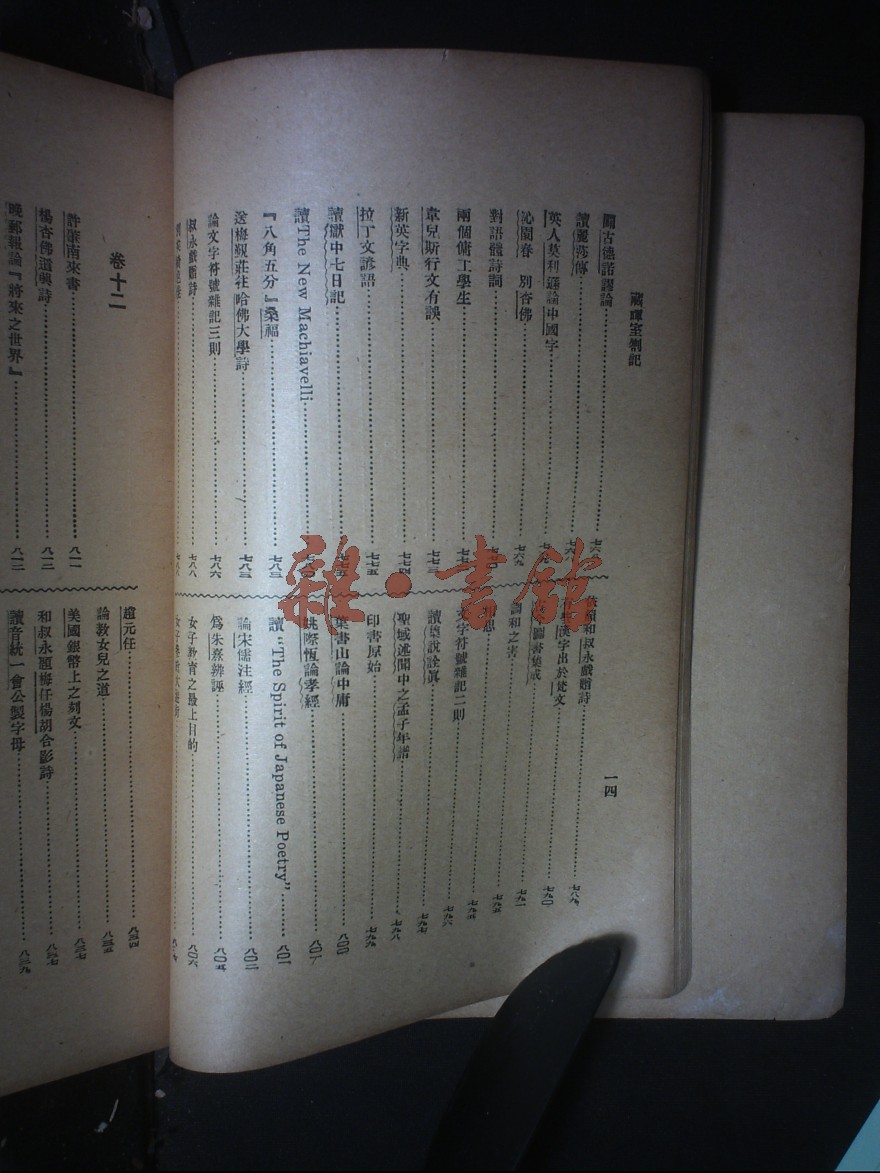 藏暉室劄記
一四
闢古德諾謬論
讀麗莎傳
英人莫利遜論中國字
沁園春 別杏佛
對語體詩詞
兩個傭工學生
韋兒斯行文有誤
新英字典
拉丁文諺語
讀獄中七日記
讀The New Machiavelli
『八角五分』桑福
送梅覲莊往哈佛大學詩
論文字符號雜記三則
叔永戲贈詩
和叔永戲贈詩 七八九
漢字出於梵文 七九〇
調和之害
文字符號雜記二則
讀集說詮眞 七九七
聖域述聞中之孟子年譜 七九八
印書原始 七九九
葉書山論中庸 八〇〇
姚際恆論孝經 八〇一
讀"The Spirit of Japanese Poetry" 八〇一
論宋儒注經 八〇二
爲朱熹辨誣 八〇五
女子敎育之最上目的 八〇六
卷十二
許肇南來書 八一一
楊杏佛遣興詩 八一二
晚郵報論『將來之世界』 八一二
趙元任 八三四
論敎女兒之道 八三五
美國銀幣上之刻文 八三七
和叔永題梅任楊胡合影詩 八三七
讀音統一會公製字母 八三九
雜·書館